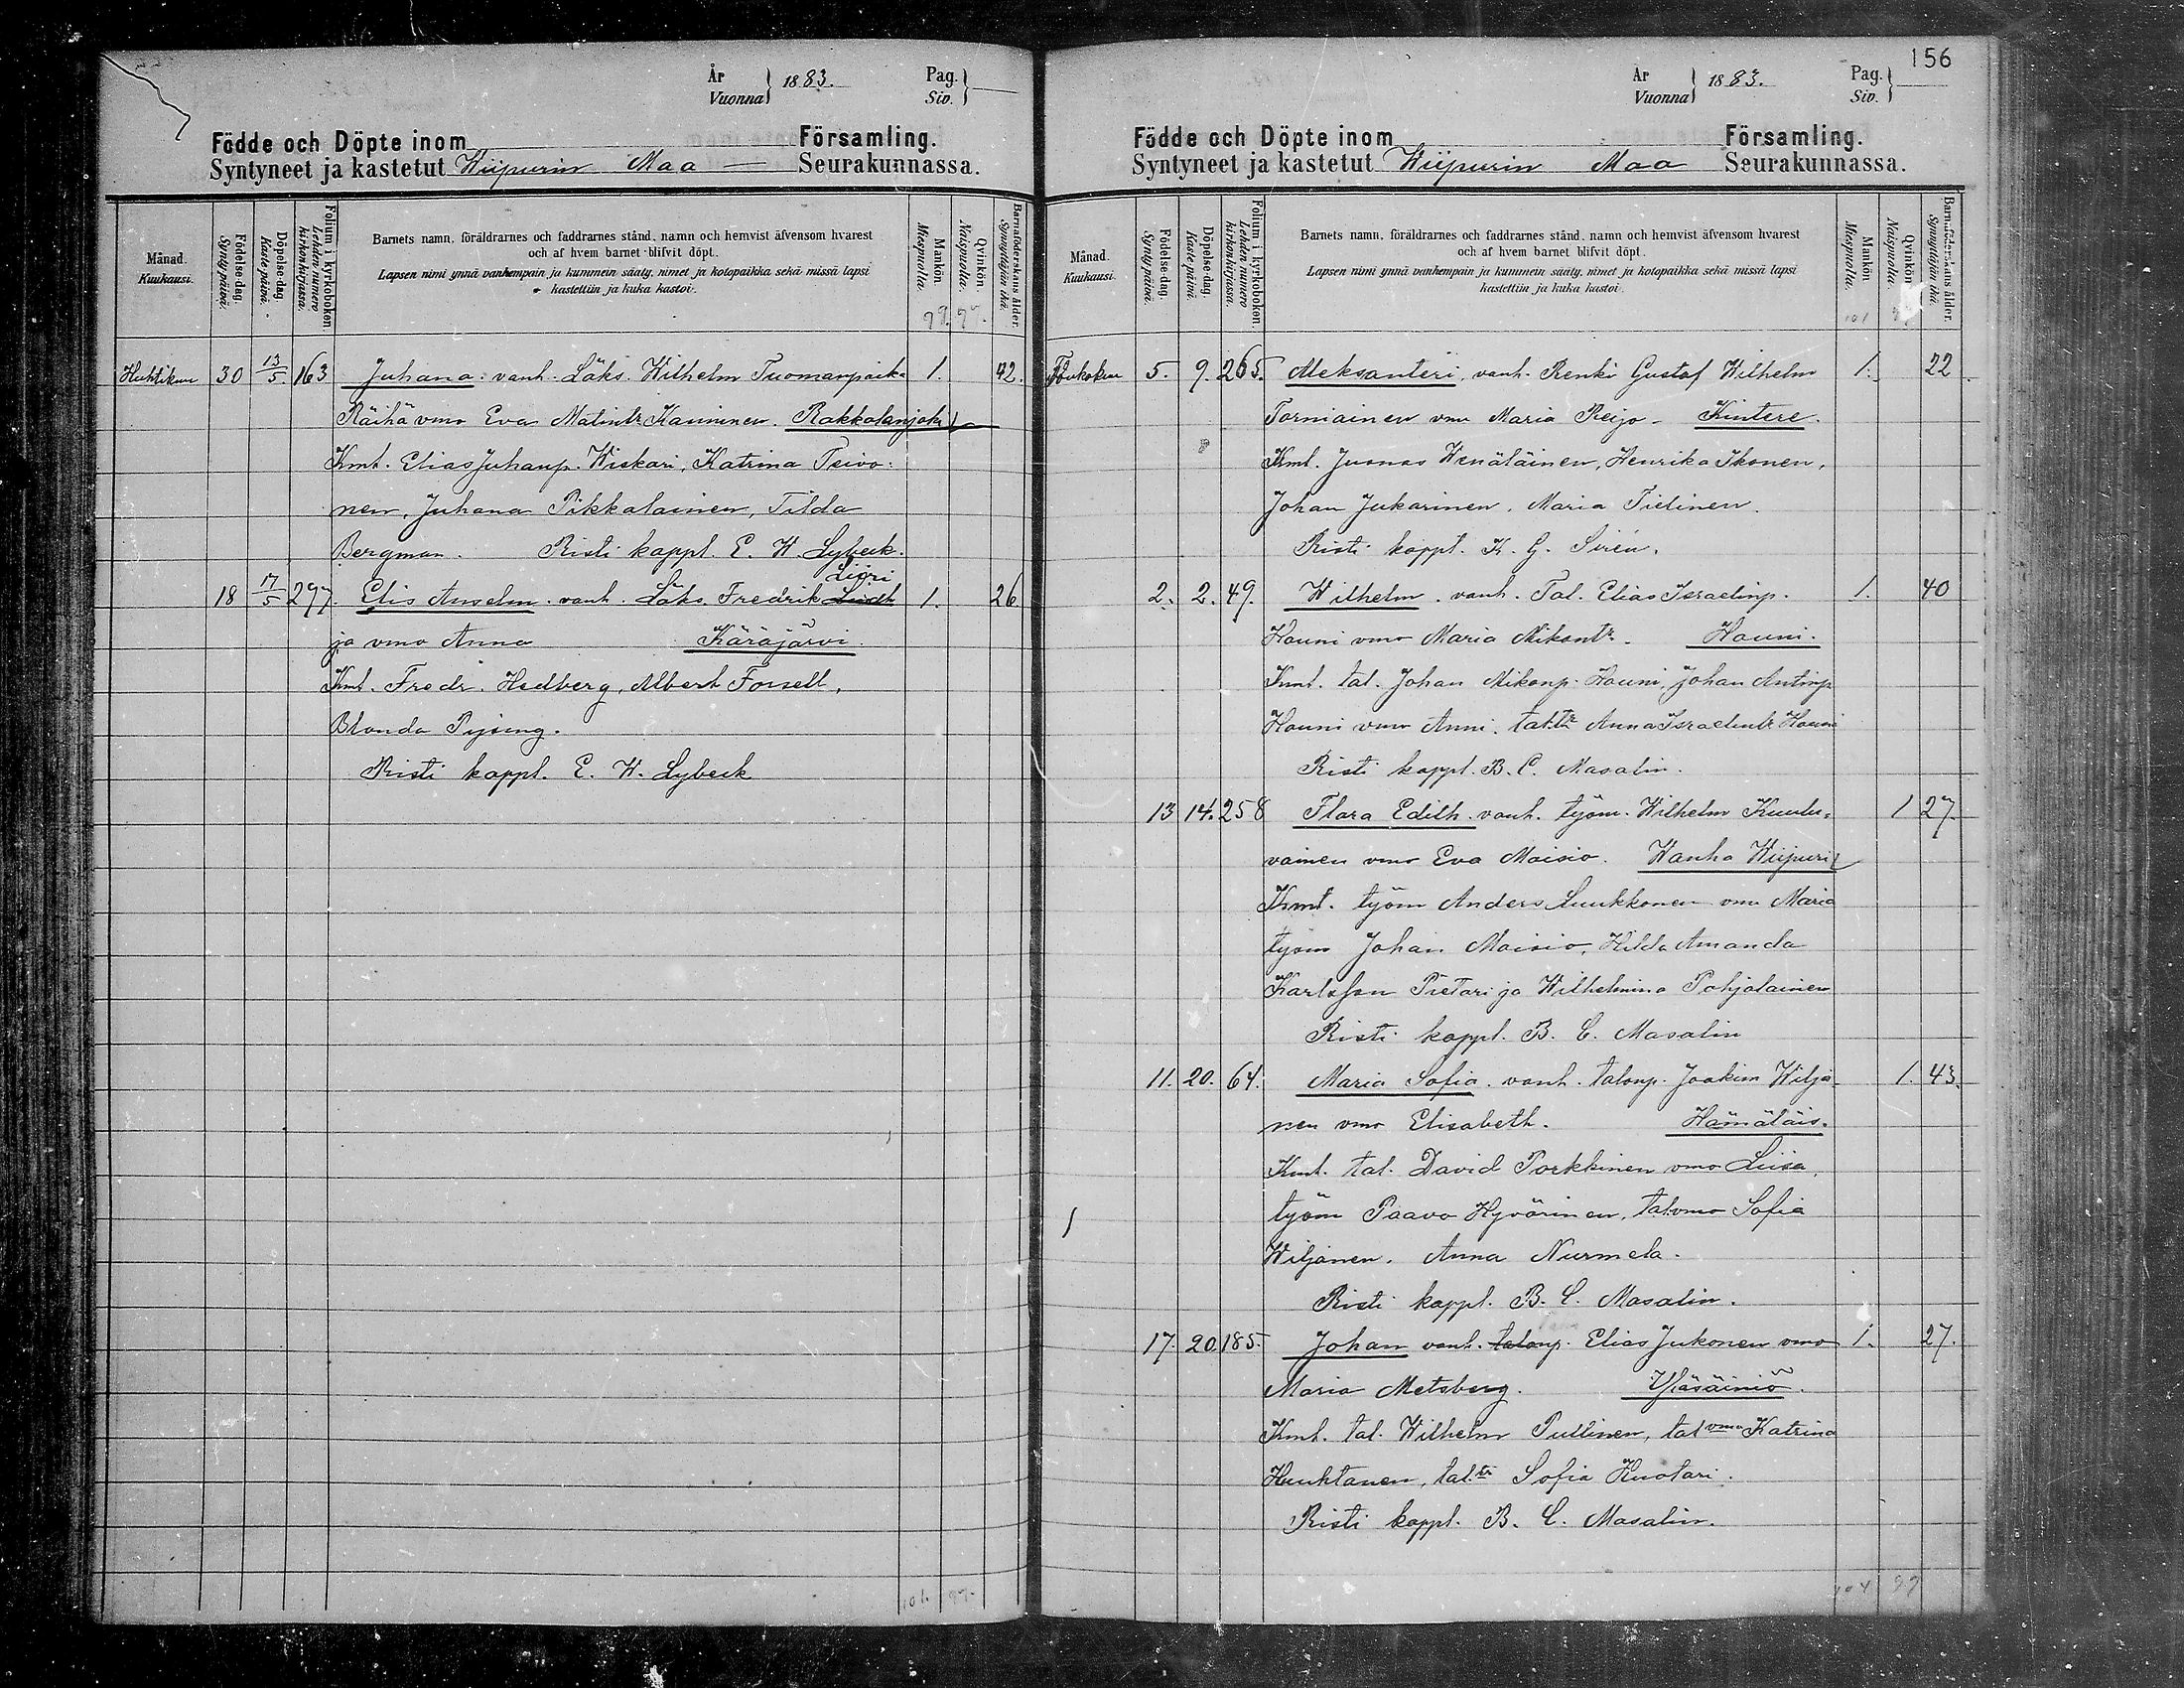 År
Vuonna } 1883.
Pag.
Siv. }
Födde och Döpte inom Församling.
Syntyneet ja kastetut Wiipurin Maa Seurakunnassa.
Månad.
Kuukausi.
Födelse-dag.
Syntypäivä.
Döpelse-dag.
Kaste-päivä.
Folium i kyrkoboken.
Lehden numero kirkonkirjassa.
Barnets namn, föräldrarnes och faddrarnes stånd, namn och hemvist äfvensom hvarest
och af hvem barnet blifvit döpt.
Lapsen nimi ynnä vanhempain ja kummein sääty, nimet ja kotopaikka sekä missä lapsi
kastettiin ja kuka kastoi.
Mankön
Miespuolia.
Qvinkön.
Naispuolia.
Barnaföderskans ålder.
Synnyttäjän ikä.
99. 97.
Huhtikuu 30 13/5 163 Juhana. vanh. Läks. Wilhelm Tuomanpoik. 1. 42.
Räihä vmo Eva Matintr Kauninen. Rakkolanjoki
Kmt. Elias Juhanp. Wiskari, Katrina Teivo-
nen, Juhana Pikkalainen, Tilda
Bergman. Risti kappl. E. W. Lybeck.
Liöri
18 17/5 297. Elis Anselm. vanh. Läks. Fredrik Lindh 1. 26.
ja vmo Anna Käräjärvi
Kmt. Fredr. Hedberg, Albert Forsell,
Blonda Pysing.
Risti kappl. E. W. Lybeck
101. 97.
156
År
Vuonna } 1883.
Pag.
Siv. }
Födde och Döpte inom Församling.
Syntyneet ja kastetut Wiipurin Maa Seurakunnassa.
Månad.
Kuukausi.
Födelse-dag.
Syntypäivä.
Döpelse-dag.
Kaste-päivä.
Folium i kyrkoboken.
Lehden numero kirkonkirjassa.
Barnets namn, föräldrarnes och faddrarnes stånd, namn och hemvist äfvensom hvarest
och af hvem barnet blifvit döpt.
Lapsen nimi ynnä vanhempain ja kummein sääty, nimet ja kotopaikka sekä missä lapsi
kastettiin ja kuka kastoi.
Mankön
Miespuolia.
Qvinkön
Naispuolia.
Barnaföderskans ålder.
Synnyttäjän ikä.
101
Toukokuu 5. 9. 265. Aleksanteri, vanh. Renki Gustaf Wilhelm 1. 22
Torniainen vmo Maria Reijo - Kintere.
Kmt. Juonas Wenäläinen, Henrika Ikonen,
Johan Jukarinen, Maria Tielinen.
Risti kappl. K. G. Sirén.
2. 2. 49. Wilhelm. vanh. Tal. Elias Israelinp. 1. 40
Houni vmo Maria Mikontr. Houni.
Kmt. tal. Johan Mikonp. Houni, Johan Antinp
Houni vmo Anni. tal.tr Anna Israelintr Houni
Risti kappl. B. C. Masalin.
13 14. 258 Flora Edith. vanh. työm. Wilhelm Kuulu-  1 27.
vainen vmo Eva Moisio. Wanha Wiipuri
Kmt. työm Anders Luukkonen vmo Maria
työm Johan Moisio, Hilda Amanda
Karlsson Pietari ja Wilhelmina Pohjalainen
Risti kappl. B. C. Masalin
11. 20. 64. Maria Sofia. vanh. talonp. Joakim Wiljä- 1. 43.
nen vmo Elisabeth. Hämäläis.
Kmt. tal. David Porkkinen vmo Liisa,
työm Paavo Hyvärinen, tal.vmo Sofia
Wiljanen. Anna Nurmela.
Risti kappl. B. C. Masalin.
17. 20. 185. Johan vanh. talonp. Elias Jukonen vmo 1. 27.
Maria Metsberg. Yläsäiniö.
Kmt. tal. Wilhelm Pullinen, tal vmo Katrina
Huuhtanen, tal.tr Sofia Kuotari.
Risti kappl. B. C. Masalin.
104 99